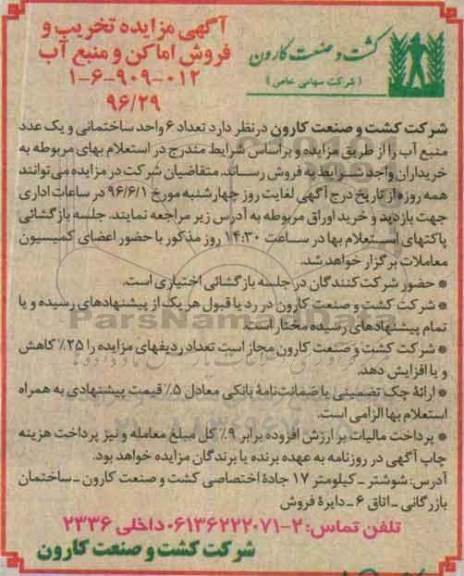 کشت و صنعت کارون
(شرکت سهامی خاص)
آگهی مزایده تخریب و
فروش اماکن و منبع آب
۱-۶-۹۰۹-۰۱۲
۹۶/۲۹
شرکت کشت و صنعت کارون در نظر دارد تعداد ۶ واحد ساختمانی و یک عدد
منبع آب را از طریق مزایده و بر اساس شرایط مندرج در استعلام بهای مربوطه به
خریداران واجد شرایط به فروش رساند. متقاضیان شرکت در مزایده می‌توانند
همه روزه از تاریخ درج آگهی لغایت روز چهارشنبه مورخ ۹۶/۶/۱ در ساعات اداری
جهت بازدید و خرید اوراق مربوطه به آدرس زیر مراجعه نمایند. جلسه بازگشائی
پاکتهای استعلام بها در ساعت ۱۴:۳۰ روز مذکور با حضور اعضای کمیسیون
معاملات برگزار خواهد شد.
* حضور شرکت‌کنندگان در جلسه بازگشائی اختیاری است.
* شرکت کشت و صنعت کارون در رد یا قبول هر یک از پیشنهادهای رسیده و یا
تمام پیشنهادهای رسیده مختار است.
* شرکت کشت و صنعت کارون مجاز است تعداد ردیفهای مزایده را ۲۵٪ کاهش
و یا افزایش دهد.
* ارائه چک تضمینی یا ضمانت‌نامهٔ بانکی معادل ۵٪ قیمت پیشنهادی به همراه
استعلام بها الزامی است.
* پرداخت مالیات بر ارزش افزوده برابر ۹٪ کل مبلغ معامله و نیز پرداخت هزینه
چاپ آگهی در روزنامه به عهده برنده یا برندگان مزایده خواهد بود.
آدرس: شوشتر ـ کیلومتر ۱۷ جادهٔ اختصاصی کشت و صنعت کارون ـ ساختمان
بازرگانی ـ اتاق ۶ ـ دایرهٔ فروش
تلفن تماس: ۲-۰۶۱۳۶۲۲۲۰۷۱ داخلی ۲۳۳۶
شرکت کشت و صنعت کارون
ParsNamadData